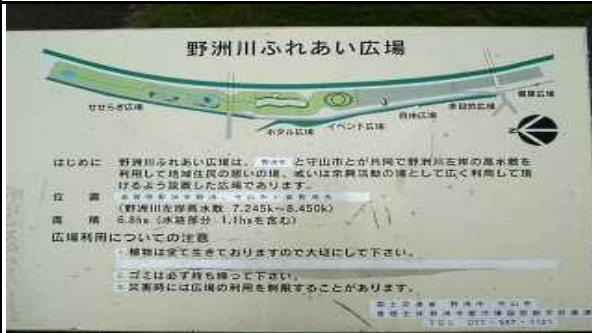 野洲川ふれあい広場
せせらぎ広場
ホタル広場
イベント広場
自由広場
多目的広場
健康広場
はじめに 野洲川ふれあい広場は、野洲市と守山市とが共同で野洲川左岸の高水敷を
利用して地域住民の憩いの場、或いは余興活動の場として広く利用して頂
けるよう設置した広場であります。
位 置
(野洲川左岸高水敷 7.245k～8.450k)
面 積 6.8ha (水路部分 1.1haを含む)
広場利用についての注意
1.植物は全て生きておりますので大切にして下さい。
2.ゴミは必ず持ち帰って下さい。
3.災害時には広場の利用を制限することがあります。
国土交通省 野洲市 守山市